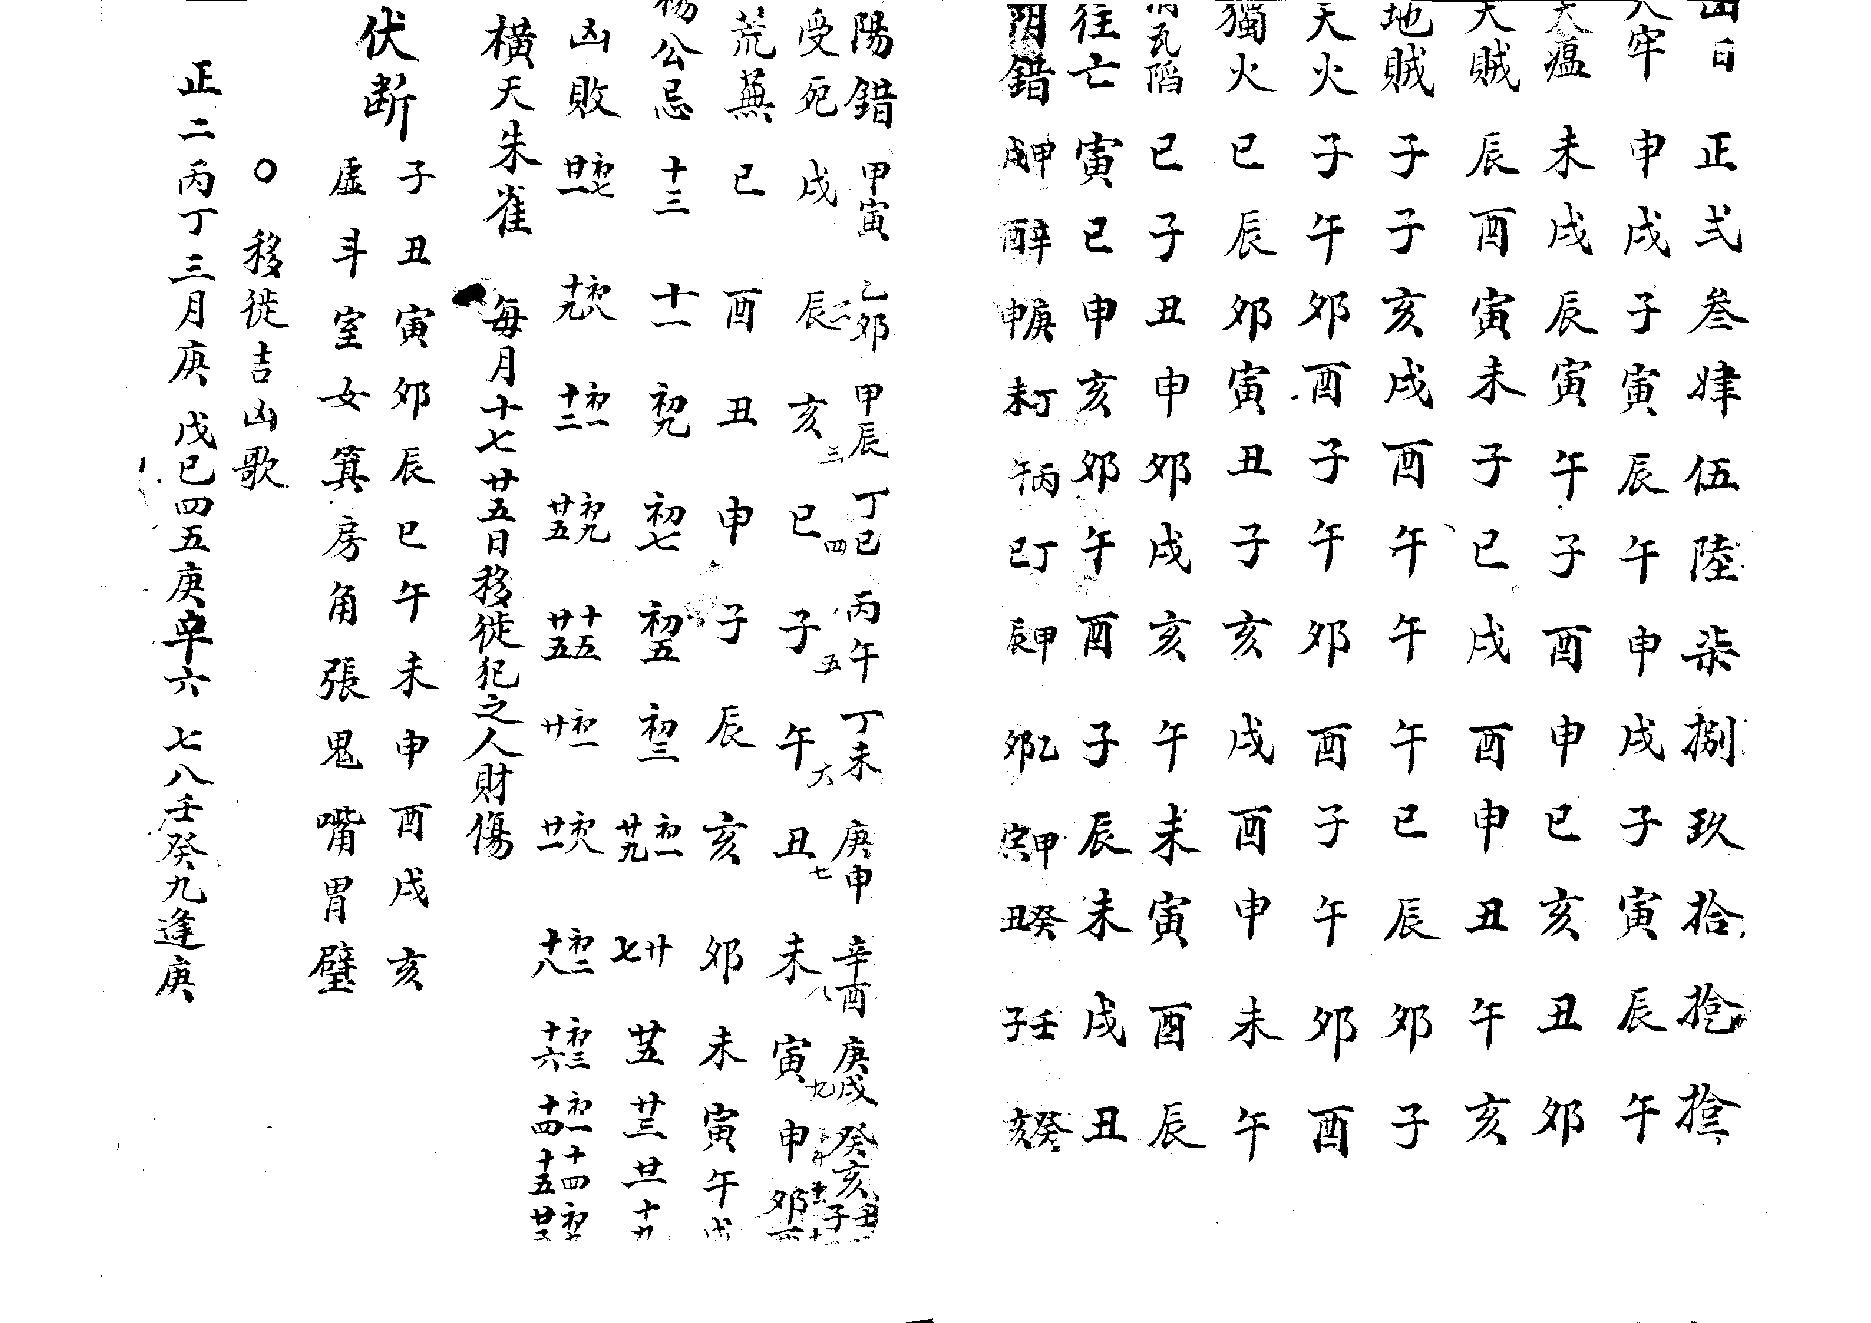 凶日 正 弍 叁 肆 伍 陸 柒 捌 玖 拾
牢 申 戌 子 寅 辰 午 申 戌 子 寅 辰 午
天瘟 未 戌 辰 寅 午 子 酉 申 巳 亥 丑 卯
天賊 辰 酉 寅 未 子 巳 戌 酉 申 丑 午 亥
地賊 子 子 亥 戌 酉 午 午 午 巳 辰 卯 子
天火 子 午 卯 酉 子 午 卯 酉 子 午 卯 酉
獨火 巳 辰 卯 寅 丑 子 亥 戌 酉 申 未 午
瓦陷 巳 子 丑 申 卯 戌 亥 午 未 寅 酉 辰
往亡 寅 巳 申 亥 卯 午 酉 子 辰 未 戌 丑
阴錯 甲戌 辛酉 庚申 丁未 丙午 丁巳 甲辰 乙卯 甲寅 癸丑 壬子 癸亥
陽錯 甲寅 乙卯 甲辰 丁巳 丙午 丁未 庚申 辛酉 庚戌 癸亥 壬子
受死 戌 辰二 亥三 巳四 子五 午六 丑七 未八 寅九 申 卯 酉
荒蕪 巳 酉 丑 申 子 辰 亥 卯 未 寅 午 戌
楊公忌 十三 十一 初九 初七 初五 初三 初一 廿九 廿七 廿五 廿三 廿一 十九
凶敗 初七 廿一 初八 十九 初一 十二 初九 廿五 十五 廿五 初一 廿 初八 廿一 初二 十八 初三 十六 初一 十四 十四 十五
橫天朱雀 每月十七廿五日移徙犯之人財傷
伏断 子丑寅卯辰巳午未申酉戌亥
虛斗室女箕房角張鬼嘴胃壁
○移徙吉凶歌
正二丙丁三月庚 戊巳四五庚辛六 七八壬癸九逢庚